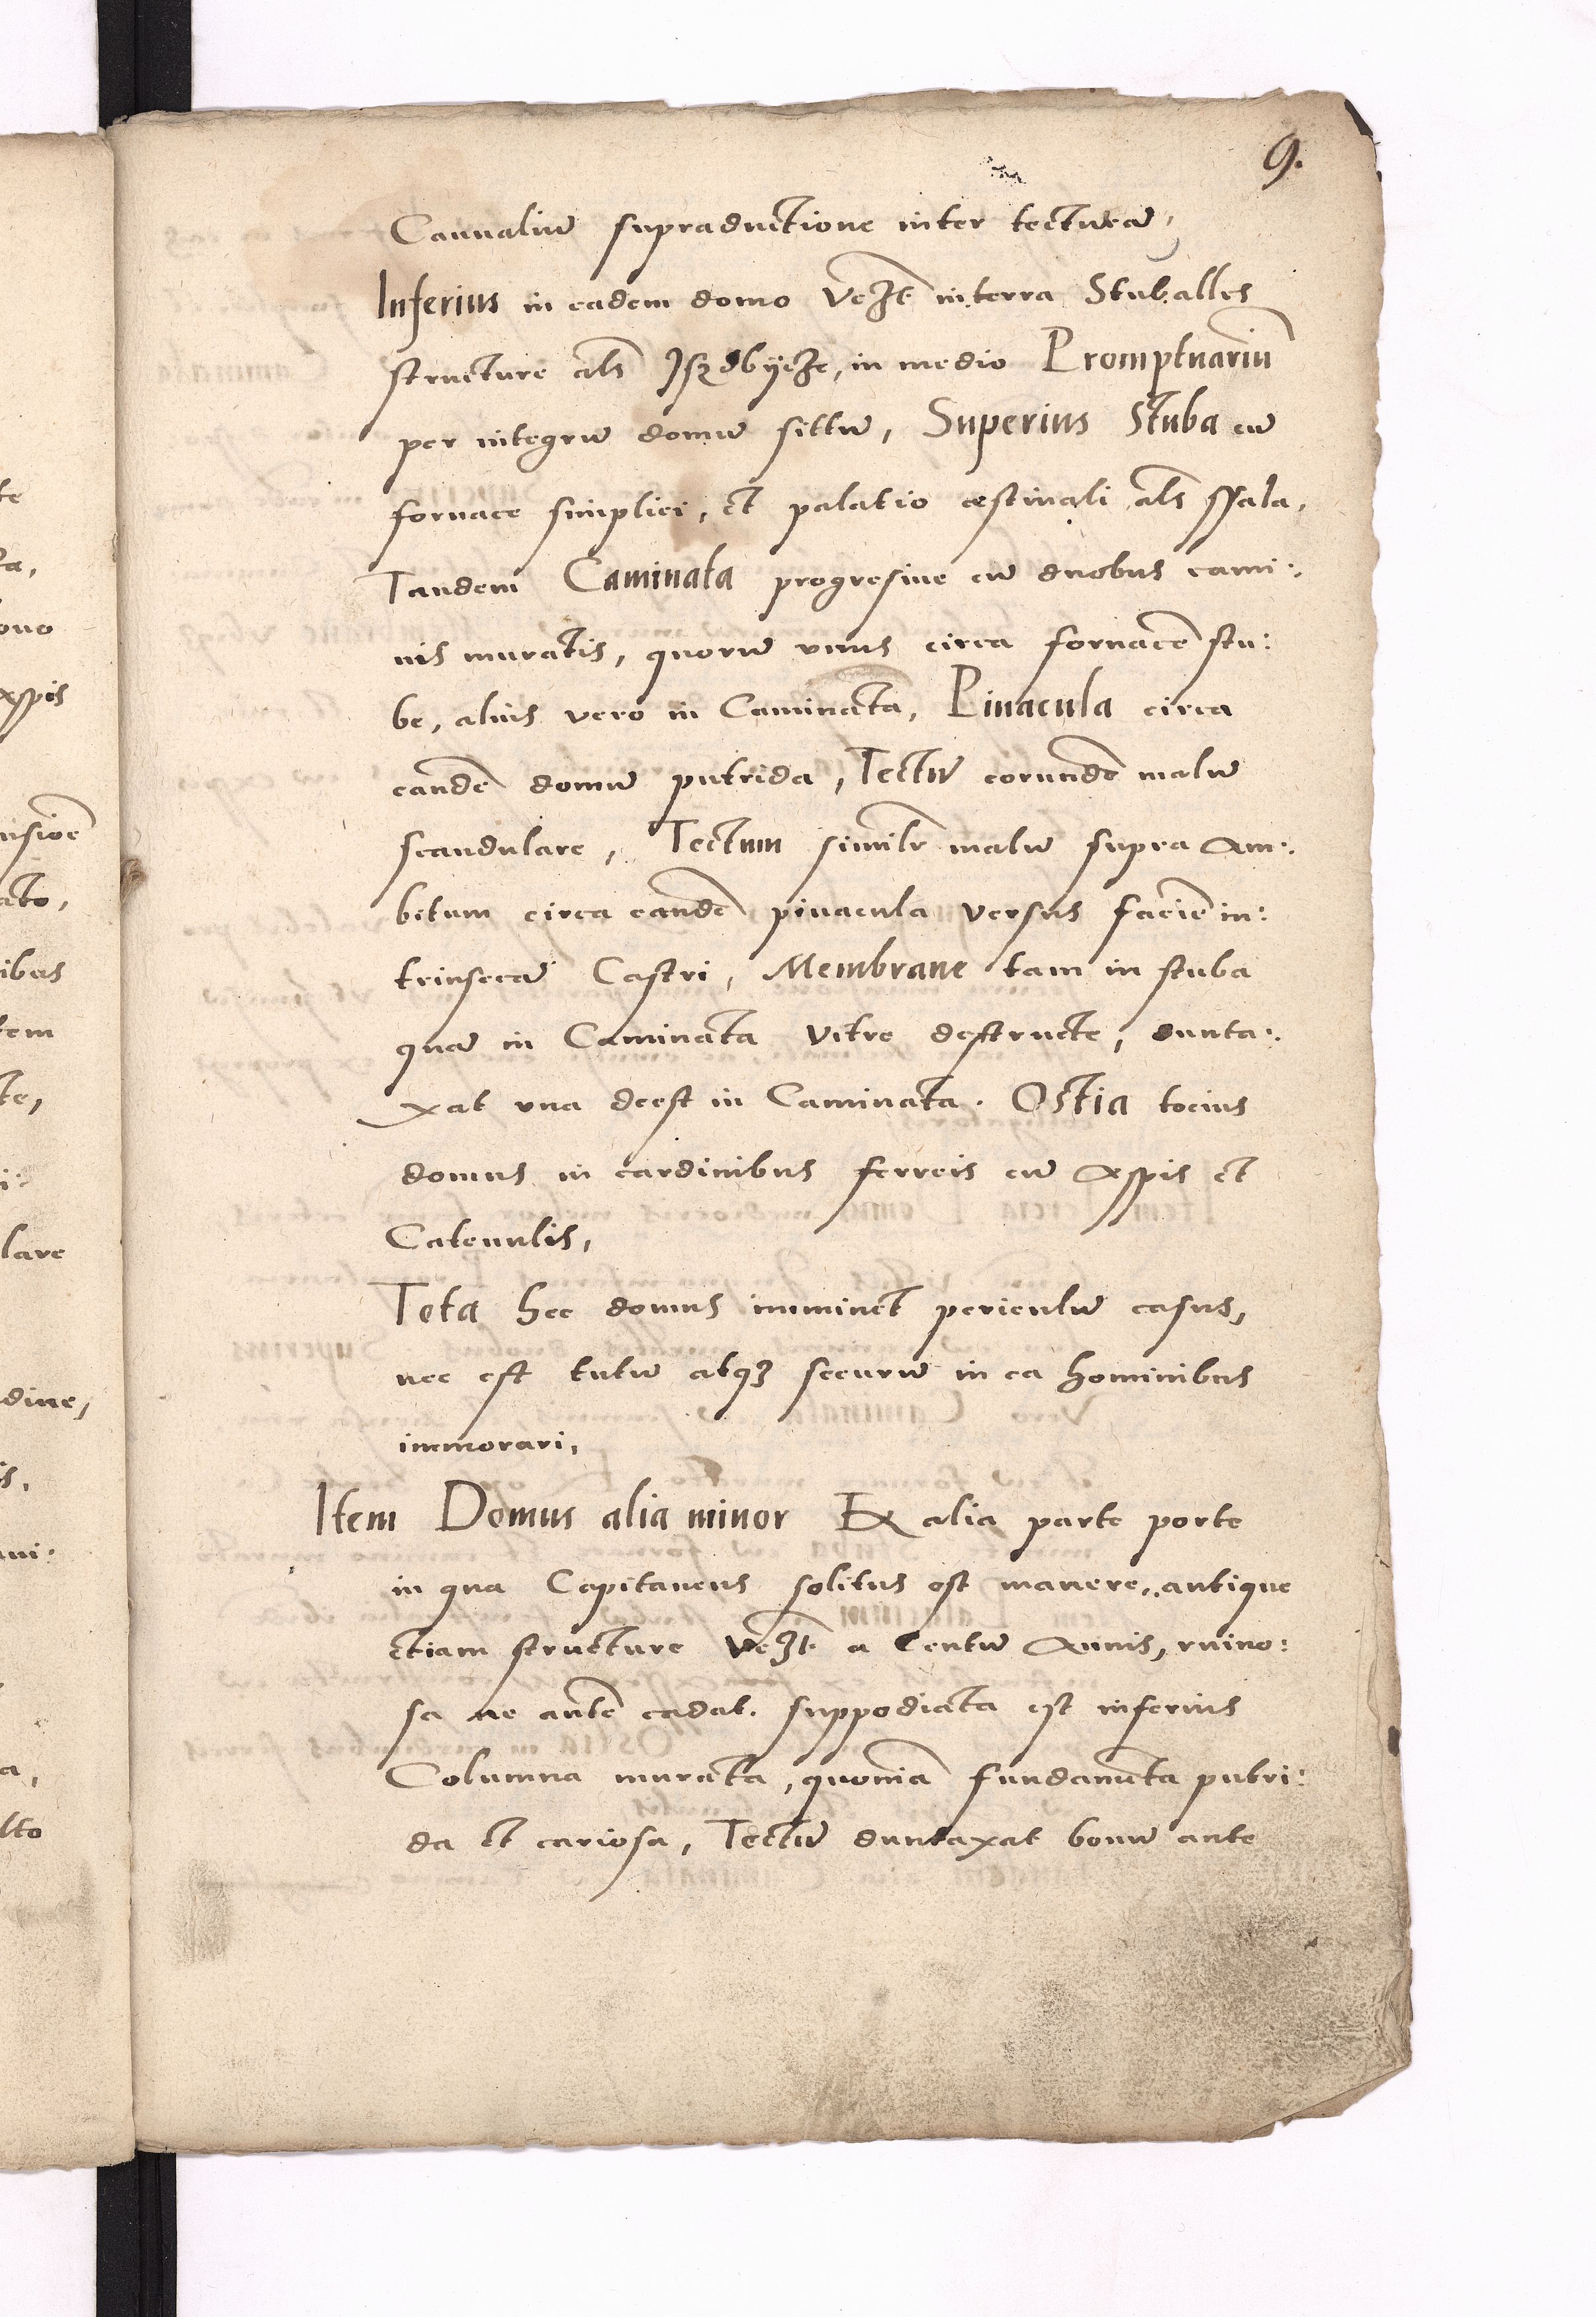 9.
Cannaliu̅ supraductione inter tectura̅,
Inferius in eadem domo in terra Stuballes
structure als̅ Jszdbycze, in medio Promptuariu̅
per integru̅ domu̅ sittu̅, Superius Stuba cu̅
fornace simplici, et palatio estivali als̅ ssala,
Tandem Caminata progresive cu̅ duobus cami:
nis muratis, quoru̅ unus circa fornace̅ stu:
be, alius vero in Caminata, Pinacula circa
eande̅ domu̅ putrida, Tectu̅ eorunde̅ malu̅
scandulare, Tectum similr̅ malu̅ supra Am:
bitum circa eande̅ pinacula versus facie̅ in:
trinseca̅ Castri, Membrane tam in stuba
qua̅ in Caminata vitre destructe, dunta:
xat una deest in Caminata. Ostia tocius
domus in cardinibus ferreis cu̅ Aspis et
Catenulis,
Tota hec domus imminet periculu̅ casus,
nec est tutu̅ atqȝ securu̅ in ea hominibus
immorari,
Item Domus alia minor Ex alia parte porte
in qua Capitaneus solitus est manere, antique
etiam structure a Centu̅ Annis, ruino:
sa ne aute̅ cadat. suppodiata est inferius
Columna murata, quonia̅ fundame̅ta putri:
da et cariosa, Tectu̅ duntaxat bonu̅ ante